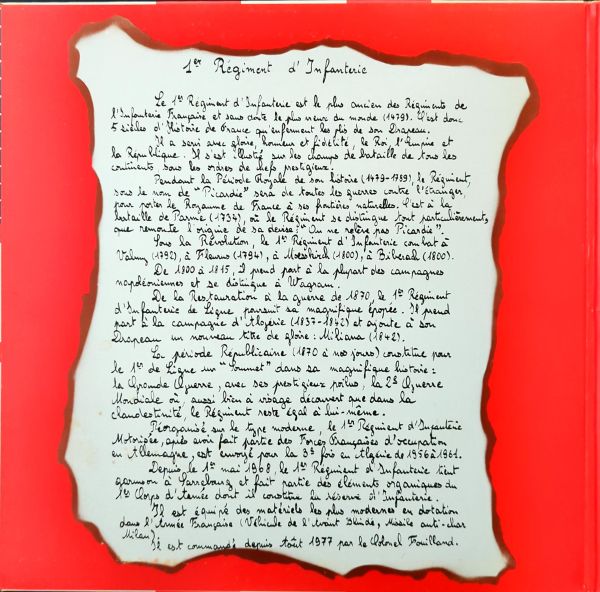 1er Régiment d'Infanterie
Le 1er Régiment d'Infanterie est le plus ancien des Régiments de
l'Infanterie Française et sans doute le plus vieux du monde (1479). C'est donc
5 siècles d'Histoire de France qu'enferment les plis de son Drapeau.
Il a servi avec gloire, honneur et fidélité, le Roi, l'Empire et
la République. Il s'est illustré sur les champs de bataille de tous les
continents sous les ordres de chefs prestigieux.
Pendant la Période Royale de son histoire (1479-1789), le Régiment,
sous le nom de "Picardie" sera de toutes les guerres contre l'Etranger,
pour porter le Royaume de France à ses frontières naturelles. C'est à la
bataille de Parme (1734), où le Régiment se distingue tout particulièrement,
que remonte l'origine de sa devise: "On ne relève pas Picardie".
Sous la Révolution, le 1er Régiment d'Infanterie combat à
Valmy (1792), à Fleurus (1794), à Moesskirch (1800), à Biberach (1800).
De 1800 à 1815, il prend part à la plupart des campagnes
napoléoniennes et se distingue à Wagram.
De la Restauration à la guerre de 1870, le 1er Régiment
d'Infanterie de Ligne poursuit sa magnifique épopée. Il prend
part à la campagne d'Algérie (1837-1842) et ajoute à son
Drapeau un nouveau titre de gloire: Miliana (1842).
La période Républicaine (1870 à nos jours) constitue pour
le 1er de Ligne un "Sommet" dans sa magnifique histoire:
la Grande Guerre, avec ses prestigieux poilus, la 2è Guerre
Mondiale où, aussi bien à visage découvert que dans la
clandestinité, le Régiment reste égal à lui-même.
Réorganisé sur le type moderne, le 1er Régiment d'Infanterie
Motorisée, après avoir fait partie des Forces Françaises d'occupation
en Allemagne, est envoyé pour la 3è fois en Algérie de 1956 à 1961.
Depuis le 1er mai 1968, le 1er Régiment d'Infanterie tient
garnison à Sarrebourg et fait partie des éléments organiques du
1er Corps d'Armée dont il constitue la réserve d'Infanterie.
Il est équipé des matériels les plus modernes en dotation
dans l'Armée Française (Véhicule de l'Avant Blindé, Missile anti-char
Milan).
Il est commandé depuis Août 1977 par le Colonel Fouilland.